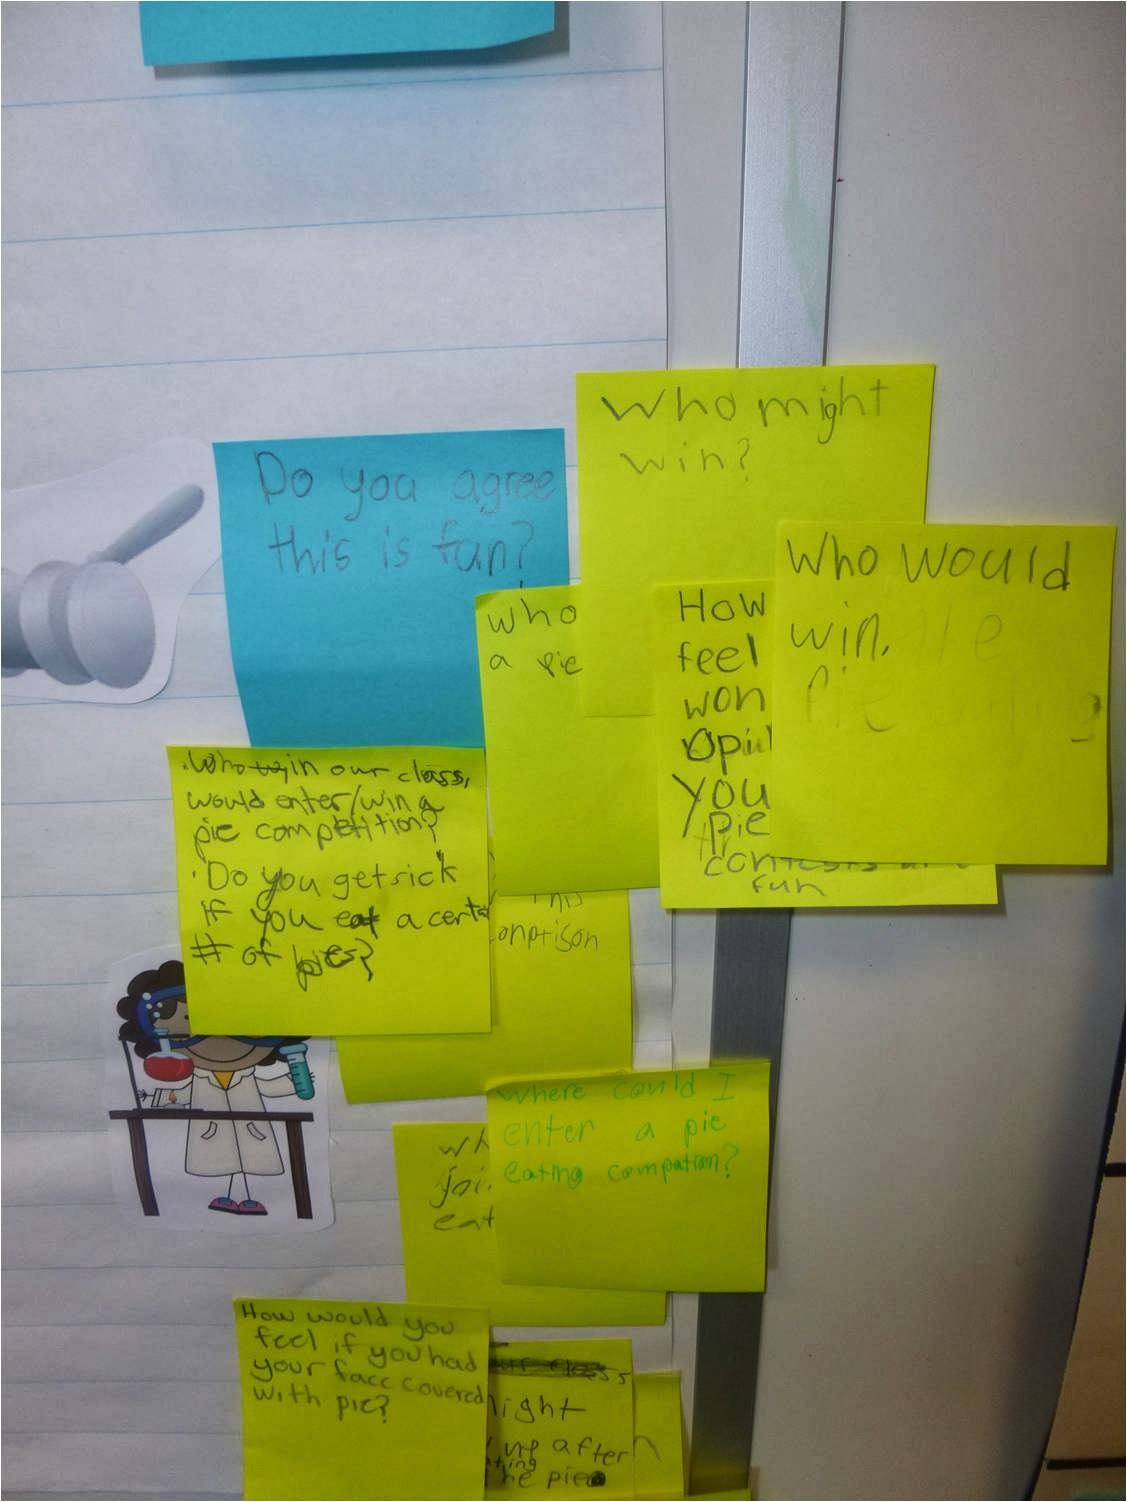 Who might
win?
Do you agree
this is fun?
Who would
win.
Pie
who
a pie
How
feel
won
you
pie
contests
fun
in our class,
would enter/win a
pie competition?
Do you get sick
if you eat a certai
# of pies?
onptison
where could I
enter a pie
eating compation?
wh
joi
eat
How would you
feel if you had
your face covered
with pie?
ight
up after
he pie